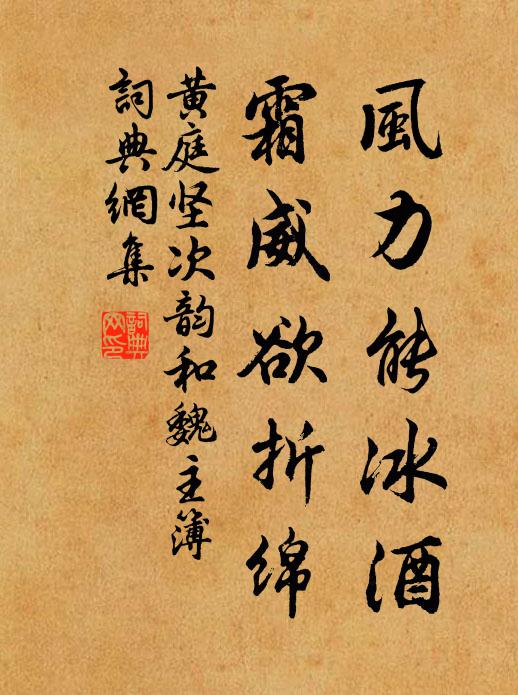 風力能冰酒
霜威欲折綿
黄庭坚次韵和魏主簿
詞典網集
詞典
网印